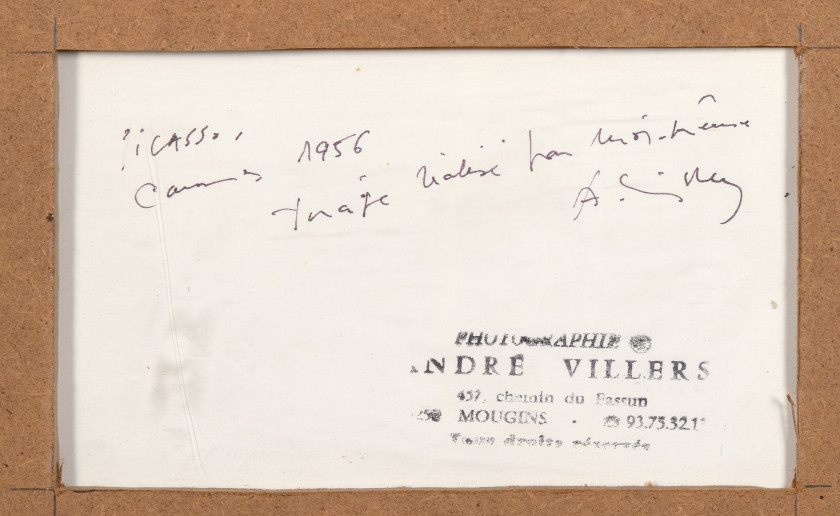 Picasso,
Cannes 1956
tirage réalisé par moi-même
A. Villers
PHOTOGRAPHIE ©
ANDRÉ VILLERS
437, chemin du Fassun
MOUGINS · ☎ 93.75.32.1
Tous droits réservés